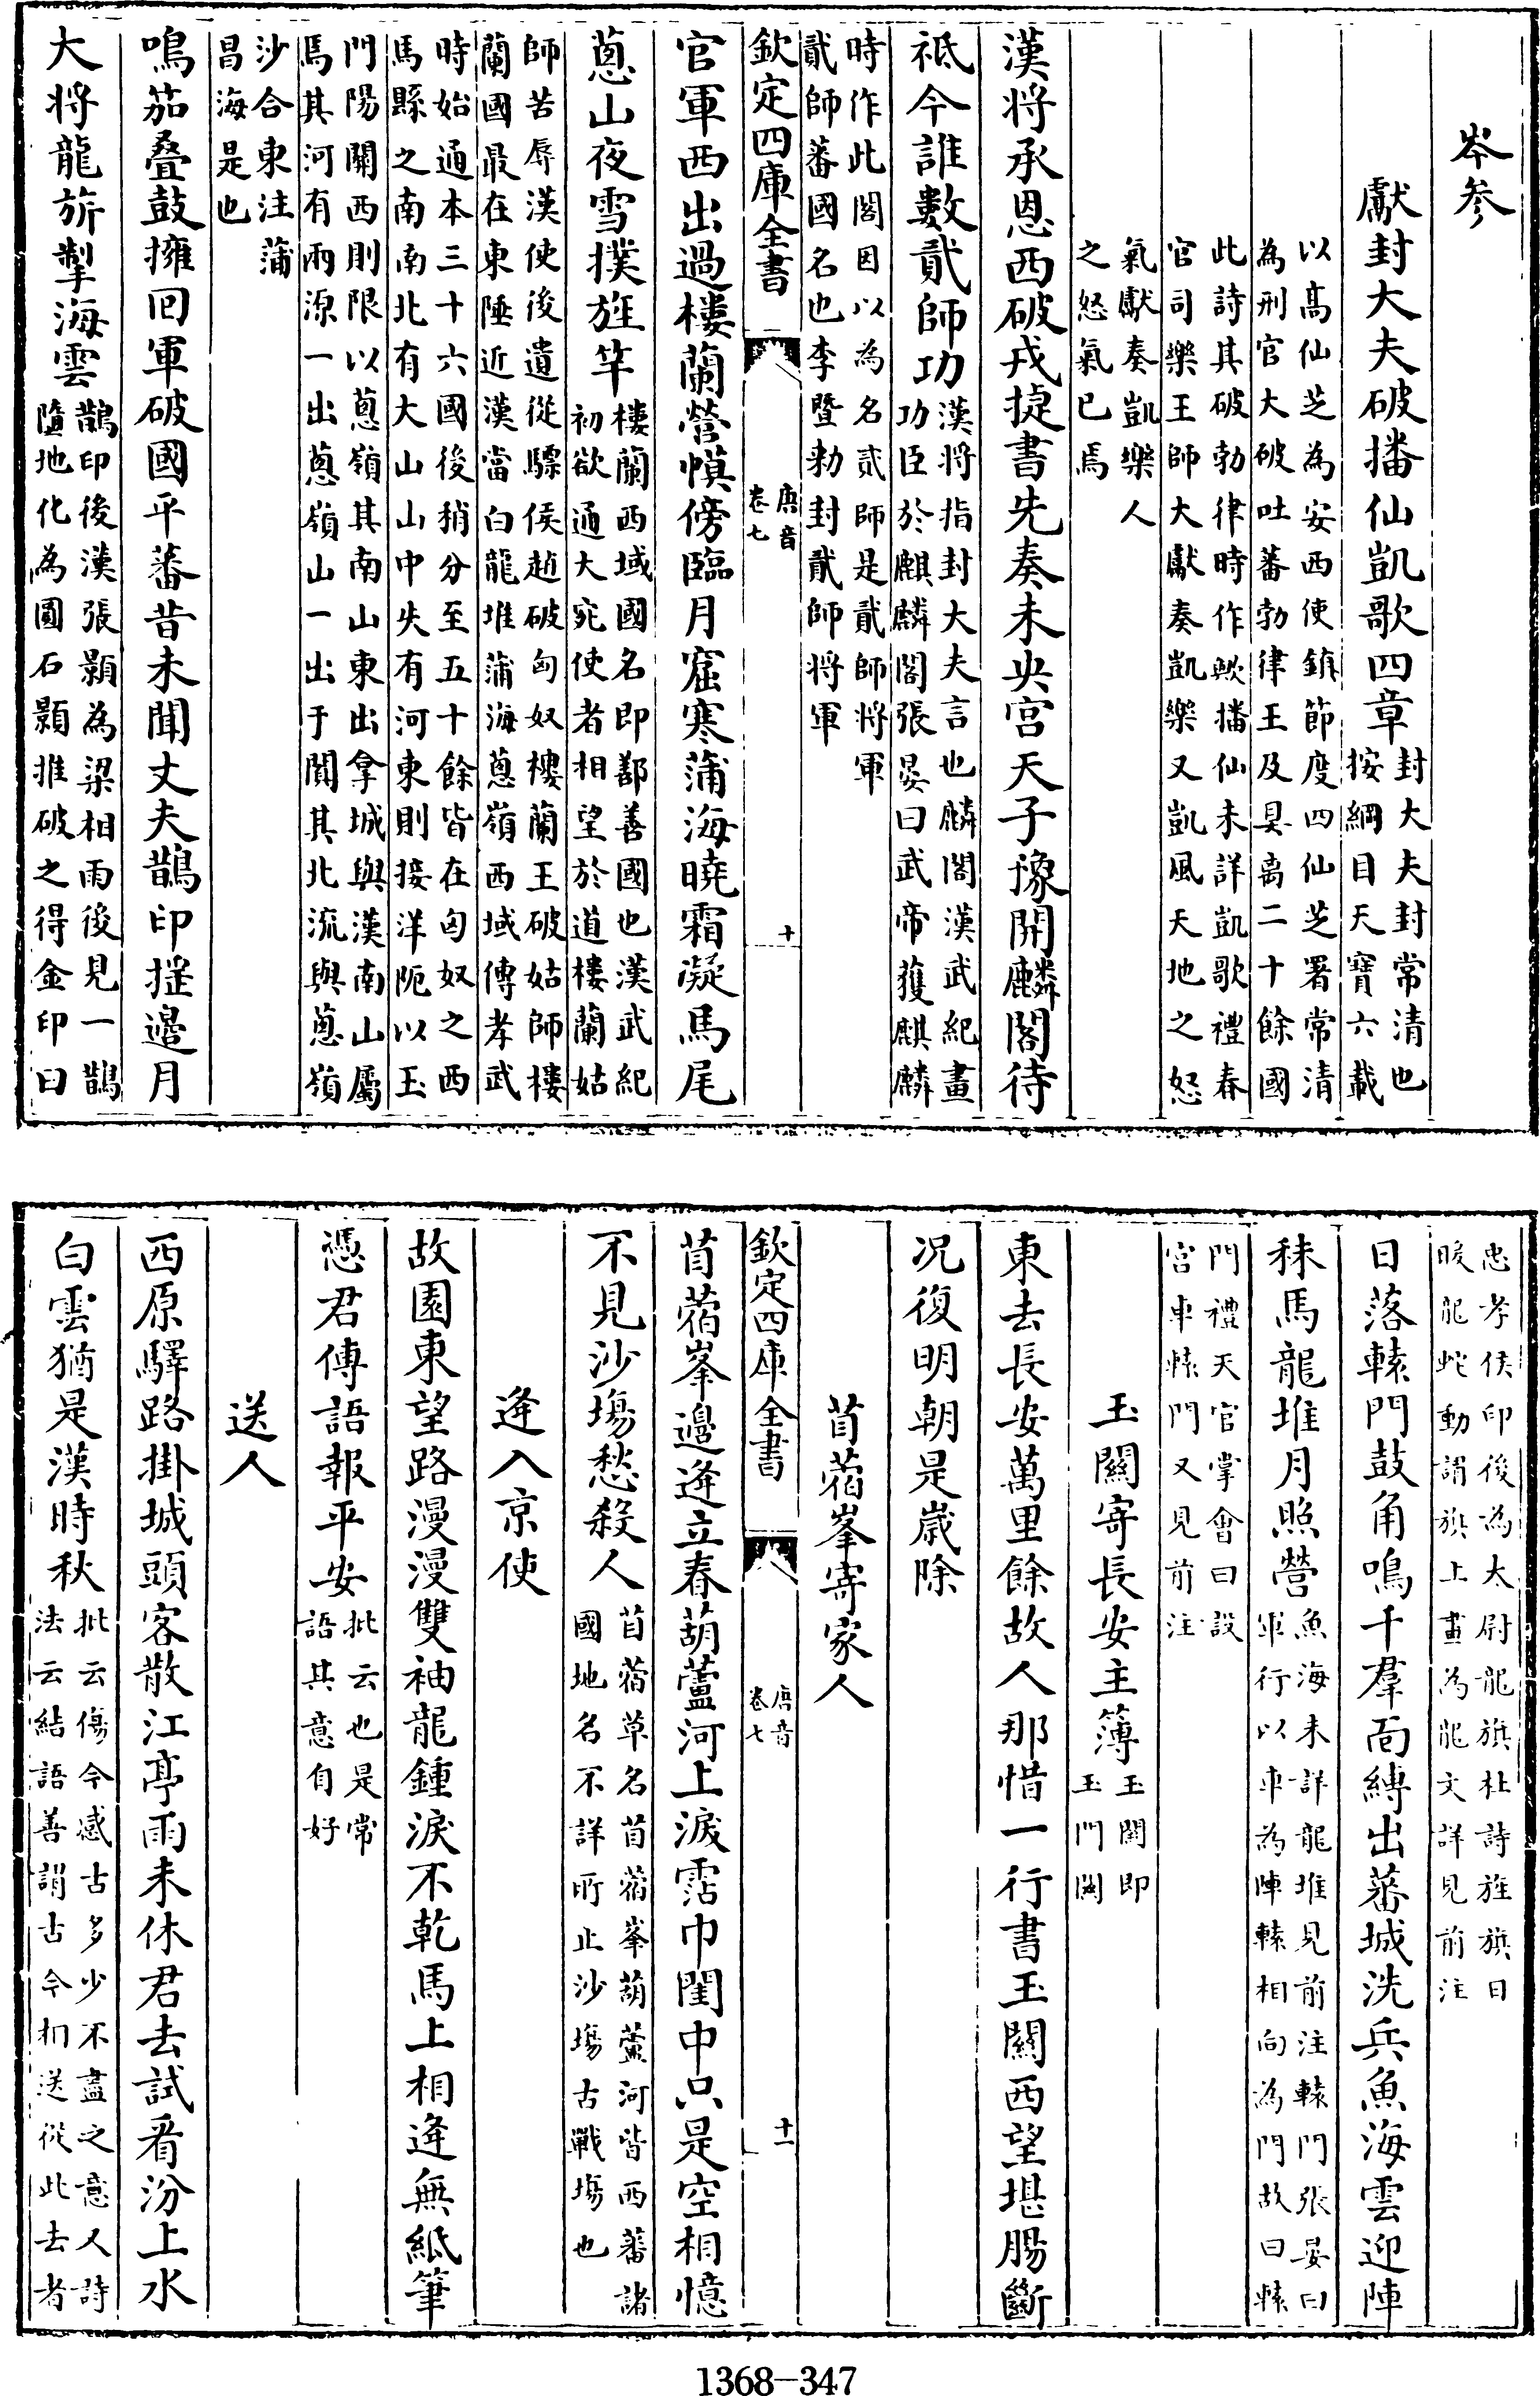 岑參
獻封大夫破播仙凱歌四章
封大夫封常清也
按綱目天寶六載
以高仙芝為安西使鎮節度四仙芝署常清
為刑官大破吐蕃勃律王及具离二十餘國
此詩其破勃律時作歟播仙未詳凱歌禮春
官司樂王師大獻奏凱樂又凱風天地之怒
氣獻奏凱樂人
之怒氣已焉
漢將承恩西破戎捷書先奏未央宫天子豫開麟閣待
祗今誰數貳師功
漢將指封大夫言也麟閣漢武紀畫
功臣於麒麟閣張晏曰武帝獲麒麟
時作此閣因以為名貳師是貳師將軍
貳師蕃國名也李暨勑封貳師將軍
欽定四庫全書
唐音
卷七
十
官軍西出過樓蘭營幙傍臨月窟寒蒲海曉霜凝馬尾
蔥山夜雪撲旌竿
樓蘭西域國名即鄯善國也漢武紀
初欲通大宛使者相望於道樓蘭姑
師苦辱漢使後遣從驃侯趙破匈奴樓蘭王破姑師樓
蘭國最在東陲近漢當白龍堆蒲海蔥嶺西域傳孝武
時始通本三十六國後稍分至五十餘皆在匈奴之西
馬縣之南南北有大山山中央有河東則接洋阨以玉
門陽關西則限以蔥嶺其南山東出拿城與漢南山屬
焉其河有兩源一出蔥嶺山一出于闐其北流與蔥嶺
沙合東注蒲
昌海是也
鳴笳疊鼓擁回軍破國平蕃昔未聞丈夫鵲印摇邉月
大將龍旂掣海雲
鵲印後漢張顥為梁相雨後見一鵲
隨地化為圓石顥推破之得金印曰
忠孝侯印後為太尉龍旗杜詩旌旗日
暖龍蛇動謂旗上畫為龍文詳見前注
日落轅門鼓角鳴千羣面縛出蕃城洗兵魚海雲迎陣
秣馬龍堆月照營
魚海未詳龍堆見前注轅門張晏曰
軍行以車為陣轅相向為門故曰轅
門禮天官掌會曰設
宫車轅門又見前注
玉關寄長安主簿
玉關即
玉門關
東去長安萬里餘故人那惜一行書玉關西望堪腸斷
况復明朝是歲除
苜蓿峯寄家人
欽定四庫全書
唐音
卷七
十一
苜蓿峯邉逄立春葫蘆河上淚霑巾閨中只是空相憶
不見沙塲愁殺人
苜蓿草名苜蓿峯葫蘆河皆西蕃諸
國地名不詳所止沙塲古戰塲也
逄入京使
故園東望路漫漫雙袖龍鍾淚不乾馬上相逄無紙筆
憑君傳語報平安
批云也是常
語其意自好
送人
西原驛路掛城頭客散江亭雨未休君去試看汾上水
白雲猶是漢時秋
批云傷今感古多少不盡之意又詩
法云結語善謂古今相送從此去者
1368—347